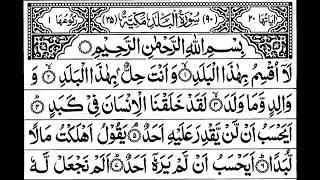 اٰیاتها ٢٠ (٩٠) سُوْرَةُ الْبَلَدِ مَكِّيَّةٌ (٣٥) رکوعها ١
بِسْمِ اللّٰهِ الرَّحْمٰنِ الرَّحِيْمِ
لَاۤ اُقْسِمُ بِهٰذَا الْبَلَدِ ۙ۝١ وَاَنْتَ حِلٌّۢ بِهٰذَا الْبَلَدِ ۙ۝٢ وَ
وَالِدٍ وَّمَا وَلَدَ ۙ۝٣ لَقَدْ خَلَقْنَا الْاِنْسَانَ فِيْ كَبَدٍ ؕ۝٤
اَيَحْسَبُ اَنْ لَّنْ يَّقْدِرَ عَلَيْهِ اَحَدٌ ۘ۝٥ يَقُوْلُ اَهْلَكْتُ مَالًا
لُّبَدًا ؕ۝٦ اَيَحْسَبُ اَنْ لَّمْ يَرَهٗۤ اَحَدٌ ؕ۝٧ اَلَمْ نَجْعَلْ لَّهٗ